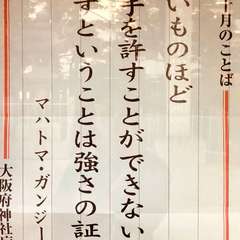 十月のことば
いものほど
手を許すことができない
すということは強さの証
マハトマ・ガンジー
大阪府神社庁